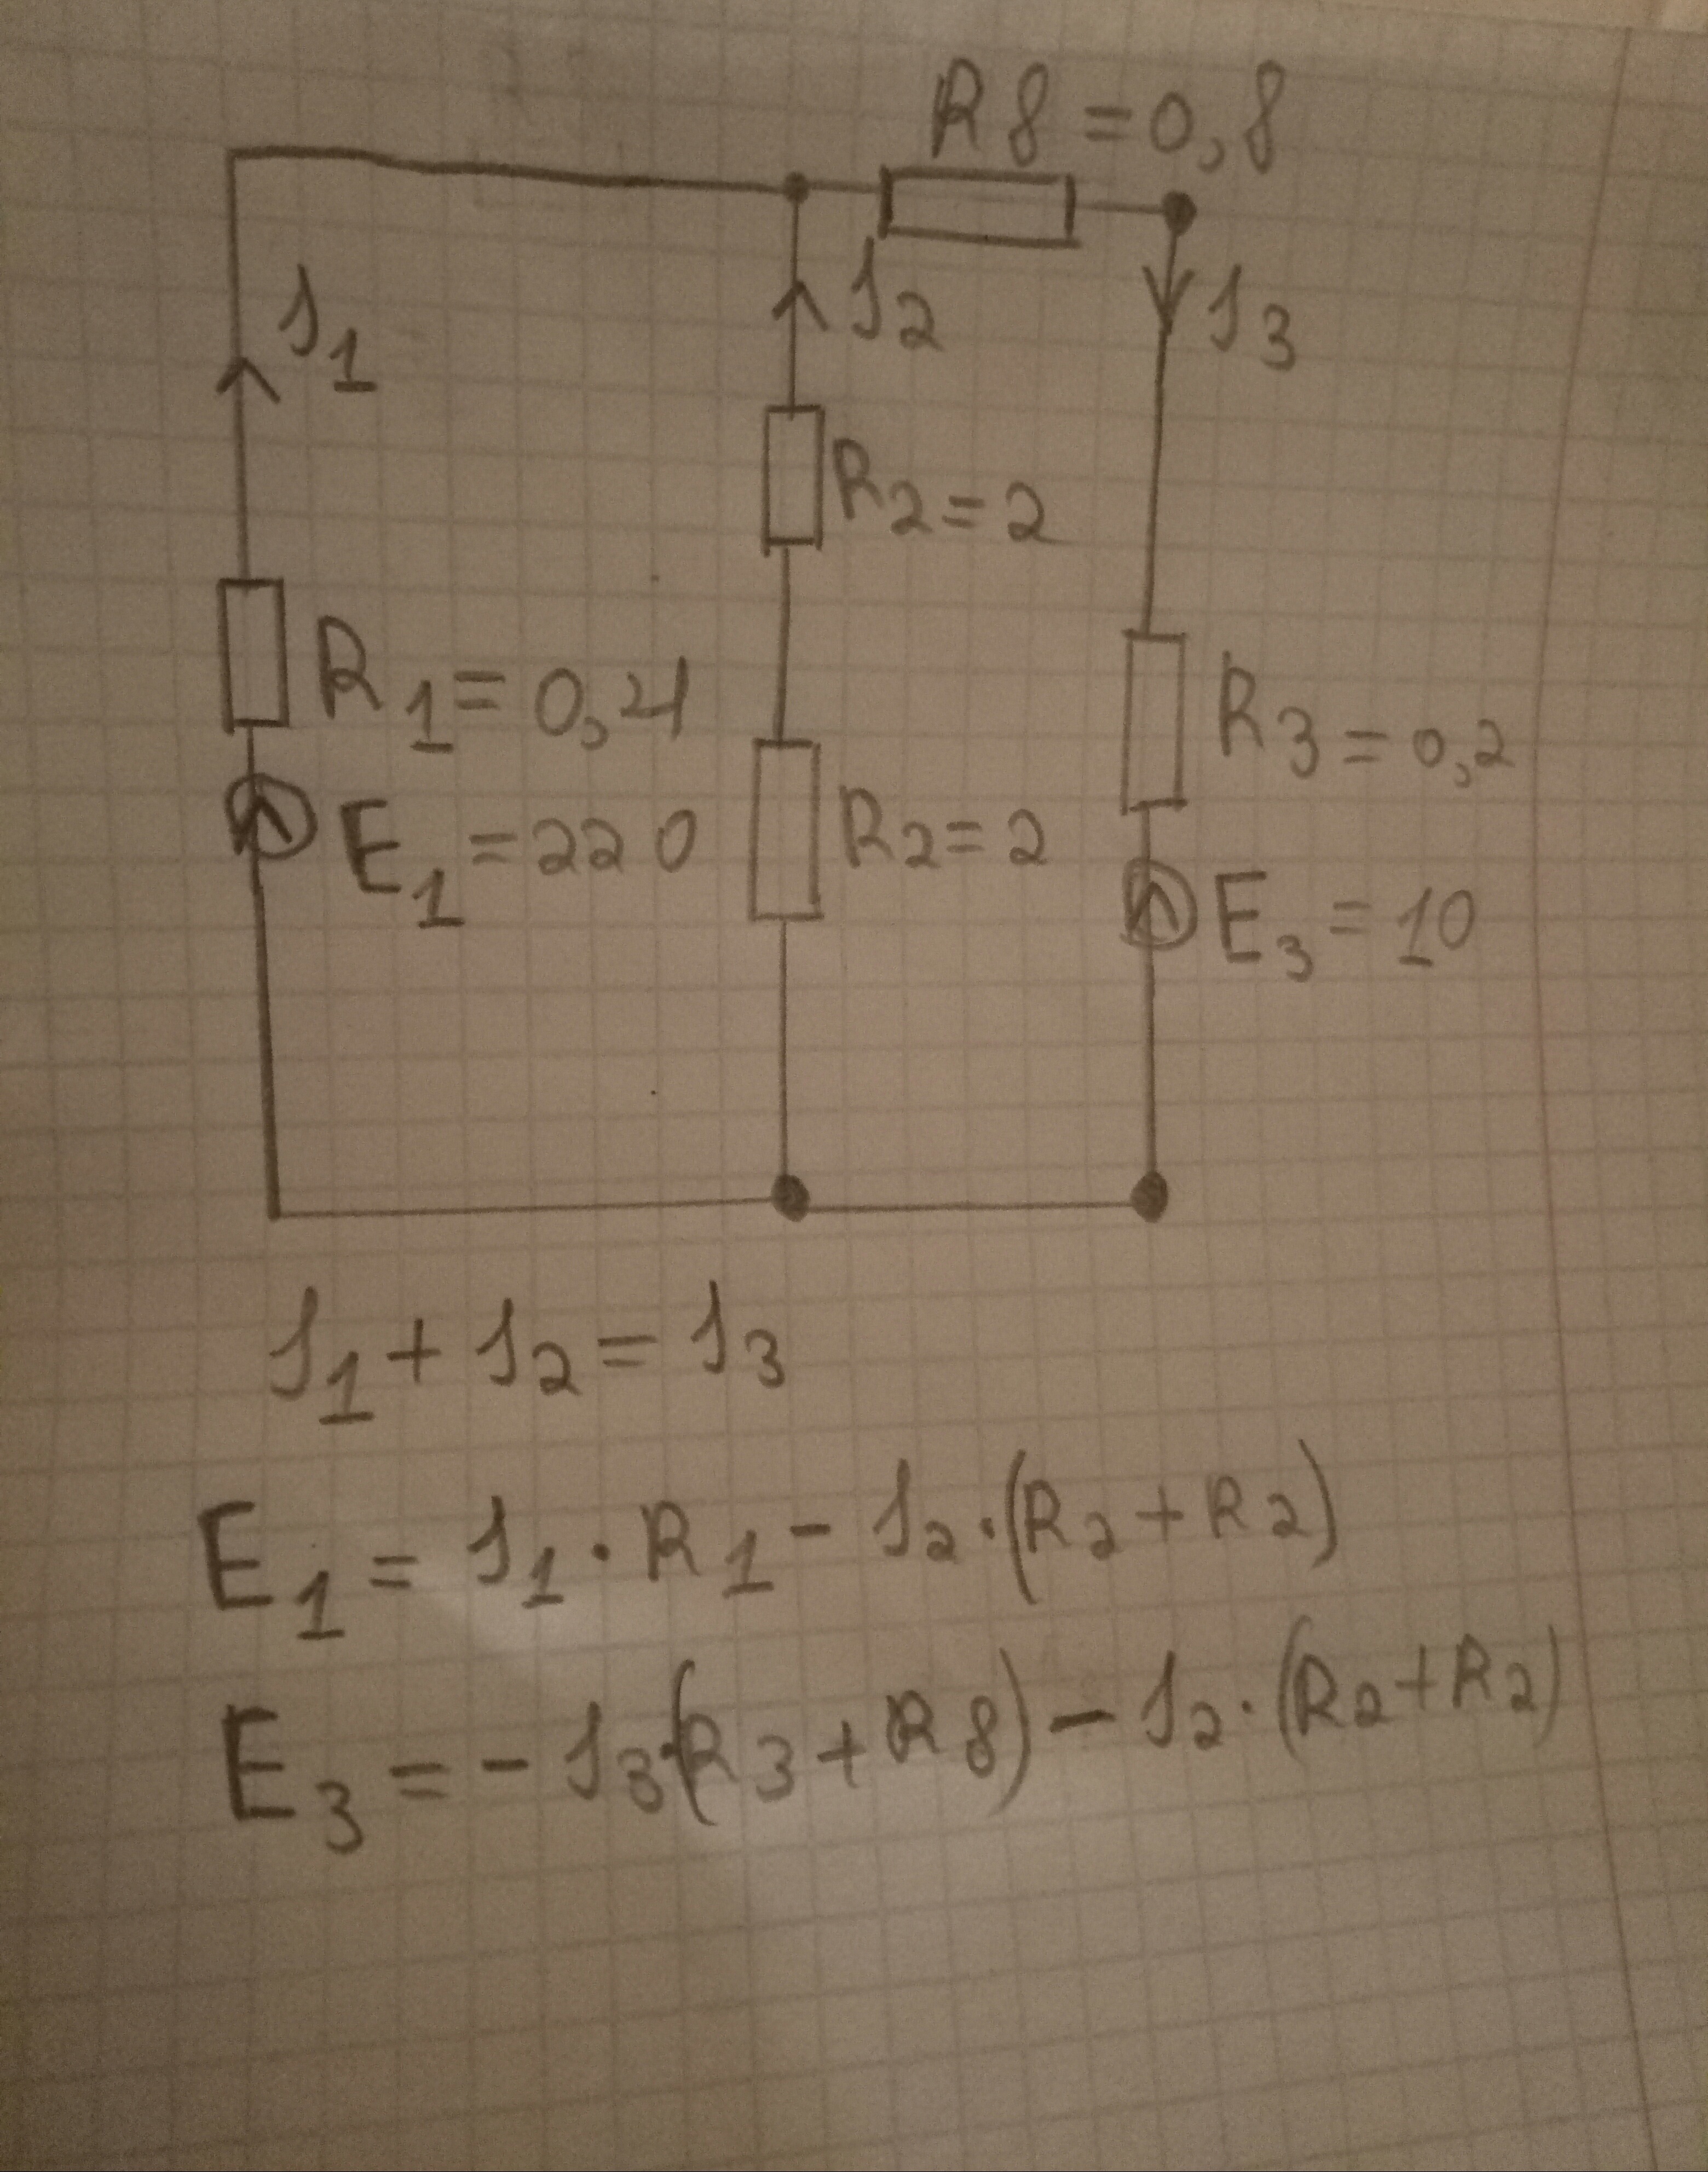 R8=0,8
I1
I2
I3
R2=2
R1=0,4
R3=0,2
E1=220
R2=2
E3=10
I1+I2=I3
E1=I1·R1-I2·(R2+R2)
E3=-I3·(R3+R8)-I2·(R2+R2)